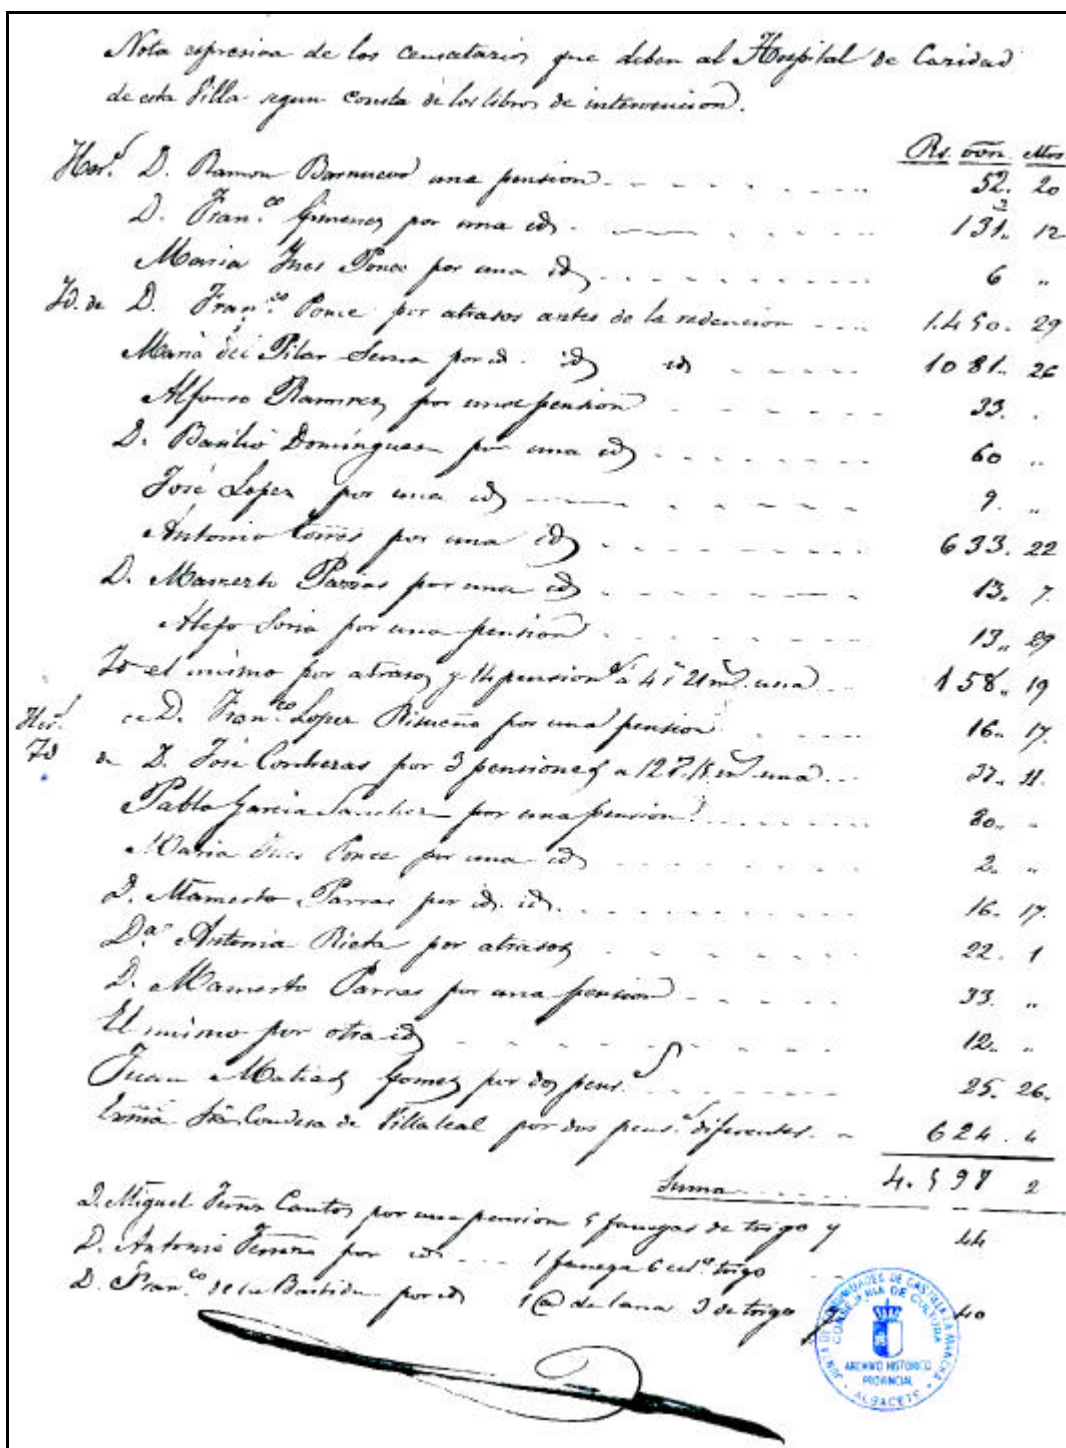 Nota espresiva de los censatarios que deben al Hospital de Caridad
de esta Villa segun consta de los libros de intervencion.
Rs. von. Mrs.
Her.s D. Ramon Barnuevo una pension 52. 20
D. Fran.co Gimenez por una id. 131. 12
Maria Ines Ponce por una id 6 "
Id. de D. Fran.co Ponce por atrasos antes de la redencion 1.450. 29
Maria del Pilar Serna por id. id id 1081. 26
Alfonso Ramirez por una pension 33. .
D. Basilio Dominguez por una id 60 "
José Lopez por una id 9. "
Antonio Torres por una id 633. 22
D. Mamerto Parras por una id 13. 7.
Alejo Soria por una pension 13. 29
Id el mismo por atrasos y 14 pension.s á 4 r 21 m.s una 158. 19
Her.s de D. Fran.co Lopez Risueño por una pension 16. 17.
Id de D. José Contreras por 3 pensiones a 12 r. 15 m.s una 37. 11.
Pablo Garcia Sanchez por una pension 80. "
Maria Ines Ponce por una id 2. "
D. Mamerto Parras por id. id. 16. 17.
D.a Antonia Rieta por atrasos 22. 1
D. Mamerto Parras por una pension 33. "
El mismo por otra id 12. "
Juan Matias Gomez por dos pens.s 25. 26.
Exma Sra Condesa de Villaleal por dos pens.s diferentes. 624. 4
Suma 4.597 2
D. Miguel Cantos por una pension 5 fanegas de trigo y 44
D. Antonio por id. 1 fanega 6 cel.s trigo
D. Fran.co de la Bastida por id 1 @ de lana 3 de trigo y 40
JUNTA DE COMUNIDADES DE CASTILLA-LA MANCHA
CONSEJERIA DE CULTURA
ARCHIVO HISTORICO
PROVINCIAL
ALBACETE